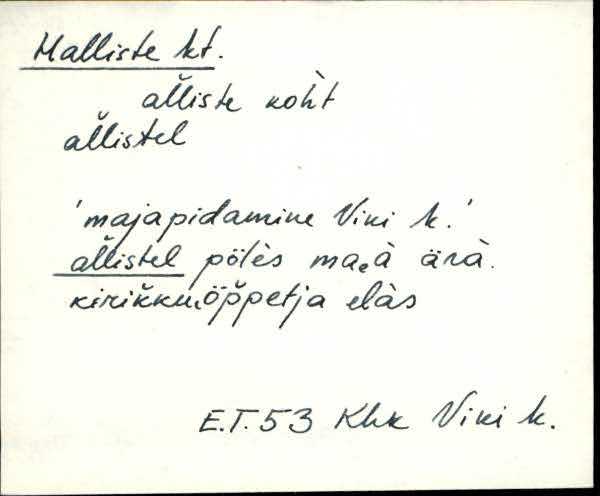 Halliste kt.
al̆liste koh̀t
al̆listel
'majapidamine Viki k.'
al̆listel põlès maeà ärà.
kirikkuõp̆petja elàs
E.T.53 Khk Viki k.